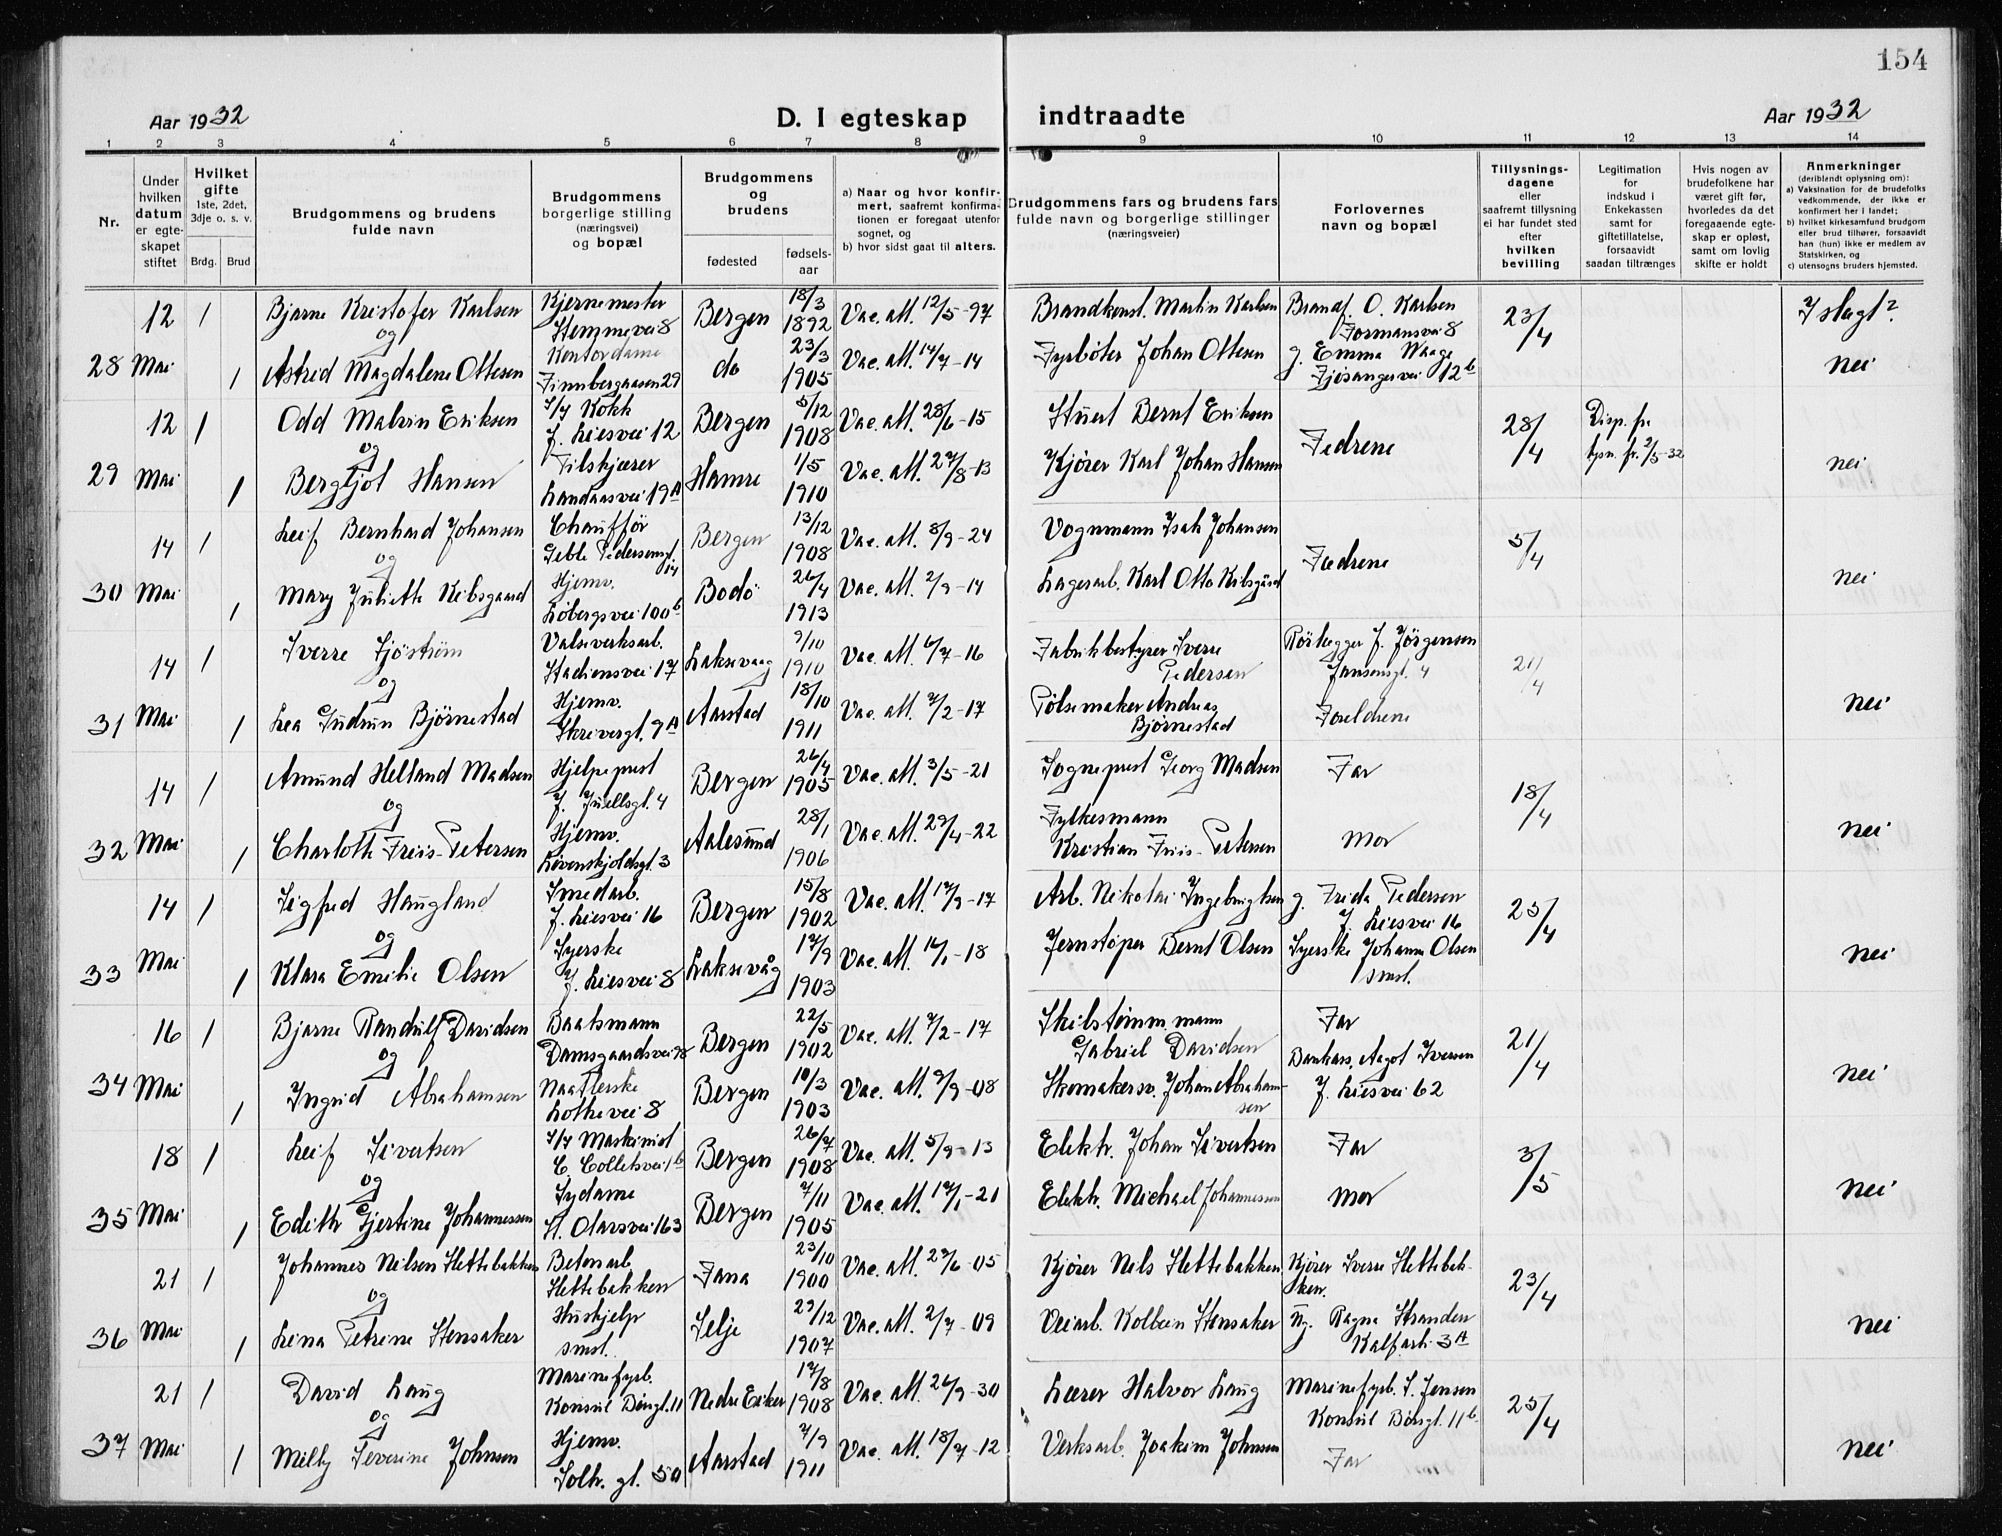 154
Aar 1932
D. I egteskap indtraadte
Aar 1932
1 2 3 4 5 6 7 8 9 10 11 12 13 14
Nr.
Under
hvilken
datum
er egte-
skapet
stiftet
Hvilket
gifte
1ste, 2det,
3dje o. s. v.
Brdg. Brud
Brudgommens og brudens
fulde navn
Brudgommens
borgerlige stilling
(næringsvei)
og bopæl
Brudgommens
og
brudens
fødested
fødsels-
aar
a) Naar og hvor konfir-
mert, saafremt konfirma-
tionen er foregaat utenfor
sognet, og
b) hvor sidst gaat til alters.
Brudgommens fars og brudens fars
fulde navn og borgerlige stillinger
(næringsveier)
Forlovernes
navn og bopæl
Tillysnings-
dagene
eller
saafremt tillysning
ei har fundet sted
efter
hvilken
bevilling
Legitimation
for
indskud i
Enkekassen
samt for
giftetillatelse,
forsaavidt
saadan tiltrænges
Hvis nogen av
brudefolkene har
været gift før,
hvorledes da det
foregaaende egte-
skap er opløst,
samt om lovlig
skifte er holdt
Anmerkninger
(deriblandt oplysning om):
a) Vaksination for de brudefolks
vedkommende, der ikke er
konfirmert her i landet;
b) hvilket kirkesamfund brudgom
eller brud tilhører, forsaavidt
han (hun) ikke er medlem av
Statskirken, og
c) utensogns bruders hjemsted.
28
12 Mai
1
1
Bjarne Kristofer Karlsen
og
Astrid Magdalene Ottesen
Kjernemester
Stemmevei 8
Kontordame
Finnbergaasen 29
Bergen
do
18/3
1892
23/3
1905
Vac. att. 12/5-97
Vac. att. 14/7-14
Brandkonst. Martin Karlsen
Fyrbøter Johan Ottesen
Brandf. O. Karlsen
Formansvei 8
g. Emma Waage
Fjøsangervei 12b
23/4
I slegt?
nei
29
12 Mai
1
1
Odd Malvin Eriksen
og
Bergljot Hansen
S/S Kokk
J. Liesvei 12
Filskjærer
Landaasvei 19A
Bergen
Hamre
5/12
1908
1/5
1910
Vac. att. 28/6-15
Vac. att. 27/8-13
Stuert Bernt Eriksen
Kjører Karl Johan Hansen
Fedrene
28/4
Disp. fr.
lysn. fr. 2/5-32
nei
30
14 Mai
1
1
Leif Bernhard Johansen
og
Mary Juliette Kibsgaard
Chauffør
Geble Pedersensgt.
14
Hjemv.
Løbergsvei 100b
Bergen
Bodø
13/12
1908
26/4
1913
Vac. att. 8/9-24
Vac. att. 2/9-14
Vognmann Isak Johansen
Lagerarb. Karl Otto Kibsgård
Fædrene
5/4
nei
31
14 Mai
1
1
Sverre Sjöström
og
Lea Gudrun Bjørnestad
Valseverksarb.
Stadionsvei 17
Hjemv.
Skrivergt. 9A
Laksevaag
Aarstad
9/10
1910
18/10
1911
Vac. att. 6/7-16
Vac. att. 7/2-17
Fabrikbestyrer Sverre
Pedersen
Pølsemaker Andreas
Bjørnestad
Rørlegger J. Jørgensen
Jansensgt. 4
Foreldrene
21/4
nei
32
14 Mai
1
1
Amund Helland Madsen
og
Charlotte Friis-Petersen
Hjelpeprest
J. Juellsgt. 4
Hjemv.
Løvenskjoldsgt. 3
Bergen
Aalesund
26/4
1905
28/1
1906
Vac. att. 3/5-21
Vac. att. 29/4-22
Sogneprest Georg Madsen
Fylkesmann
Kristian Friis-Petersen
Far
Mor
18/4
nei
33
14 Mai
1
1
Sigfred Haugland
og
Klara Emilie Olsen
Smedarb.
J. Liesvei 16
Syerske
J. Liesvei 8
Bergen
Laksevåg
15/8
1902
17/9
1903
Vac. att. 17/9-17
Vac. att. 16/1-18
Arb. Nikolai Ingebrigtsen
Jernstøper Bernt Olsen
g. Frida Pedersen
J. Liesvei 16
Syerske Johanne Olsen
smst.
25/4
nei
34
16 Mai
1
1
Bjarne Randulf Davidsen
og
Ingrid Abrahamsen
Baatsmann
Damsgaardsvei 98
Naatlerske
Lothevei 8
Bergen
Bergen
22/5
1902
10/3
1903
Vac. att. 7/2-17
Vac. att. 9/9-08
Skibstømm.mann
Gabriel Davidsen
Skomakersv. Johan Abraham-
sen
Far
Bankass. Aagot Iversen
J. Liesvei 62
21/4
nei
35
18 Mai
1
1
Leif Sivertsen
og
Edith Gjertine Johannessen
S/S Maskinist
C. Colletsvei 1b
Sydame
St. Olavsvei 163
Bergen
Bergen
26/7
1908
7/11
1905
Vac. att. 5/9-13
Vac. att. 17/1-21
Elektr. Johan Sivertsen
Elektr. Michael Johannesen
Far
Mor
3/5
nei
36
21 Mai
1
1
Johannes Nilsen Slettebakken
og
Lina Petrine Stensaker
Betonarb
Slettebakken
Hushjelp
smst.
Fana
Selje
23/10
1900
29/12
1907
Vac. att. 29/6-05
Vac. att. 2/7-09
Kjører Nels Slettebakken
Veiarb. Kolbein Stensaker
Kjører Sverre Slettebak-
ken.
Uj. Ragna Stranden
Kalfarv. 3A
23/4
nei
37
21 Mai
1
1
David Laug
og
Milly Severine Johnsen
Marinefyrb.
Konsul Børsgt. 11
Hjemv.
Solh. gt. 50
Nedre Eiker
Aarstad
17/8
1908
7/9
1911
Vac. att. 26/9-30
Vac. att. 18/7-12
Lærer Halvor Laug
Verksarb. Joakim Johnsen
Marinefyrb. S. Jensen
Konsul Børsgt. 11b
Far
25/4
nei